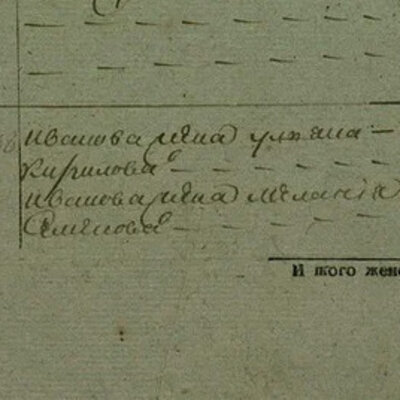 Иванова жена Улияна —
Кирилова — — — —
Иванова жена Мелания
Семенова — — — —
И того жен